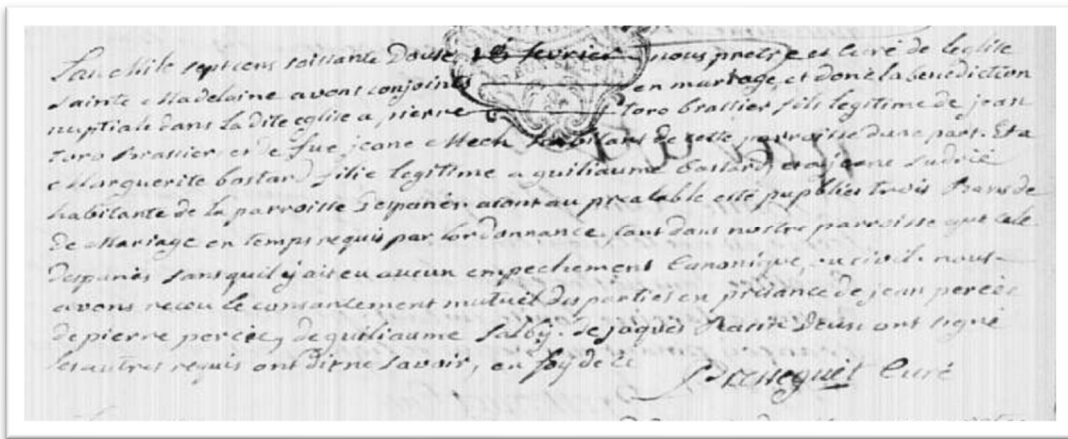 Lan Mile sept cens soissante Douse le 18 fevrier nous pretre et Curé de leglise
sainte Madelaine avons conjoints en mariage, et doné la benediction
nuptiale dans la dite eglise a pierre toro brassier fils legitime de jean
toro brassier et de fue jeane Mech habitans de cette parroisse dune part. Et a
Marguerite bastard filie legitime a guiliaume bastard et a jeane sudrié
habitante de la parroisse despanés aiont au prealable esté pupbliés trois Bans de
de Mariage en temps requis par lordonnance, tant dans nostre parroisse que cele
despanés sans quil y ait eu aucun empechement Canonique, ou civil. nous
avons receu le consancement mutuel des parties en presance de jean percée
de pierre percée, de guiliaume Salby. de jaques deux ont signé
les autres requis ont dit ne savoir, en foy de ce
Curé